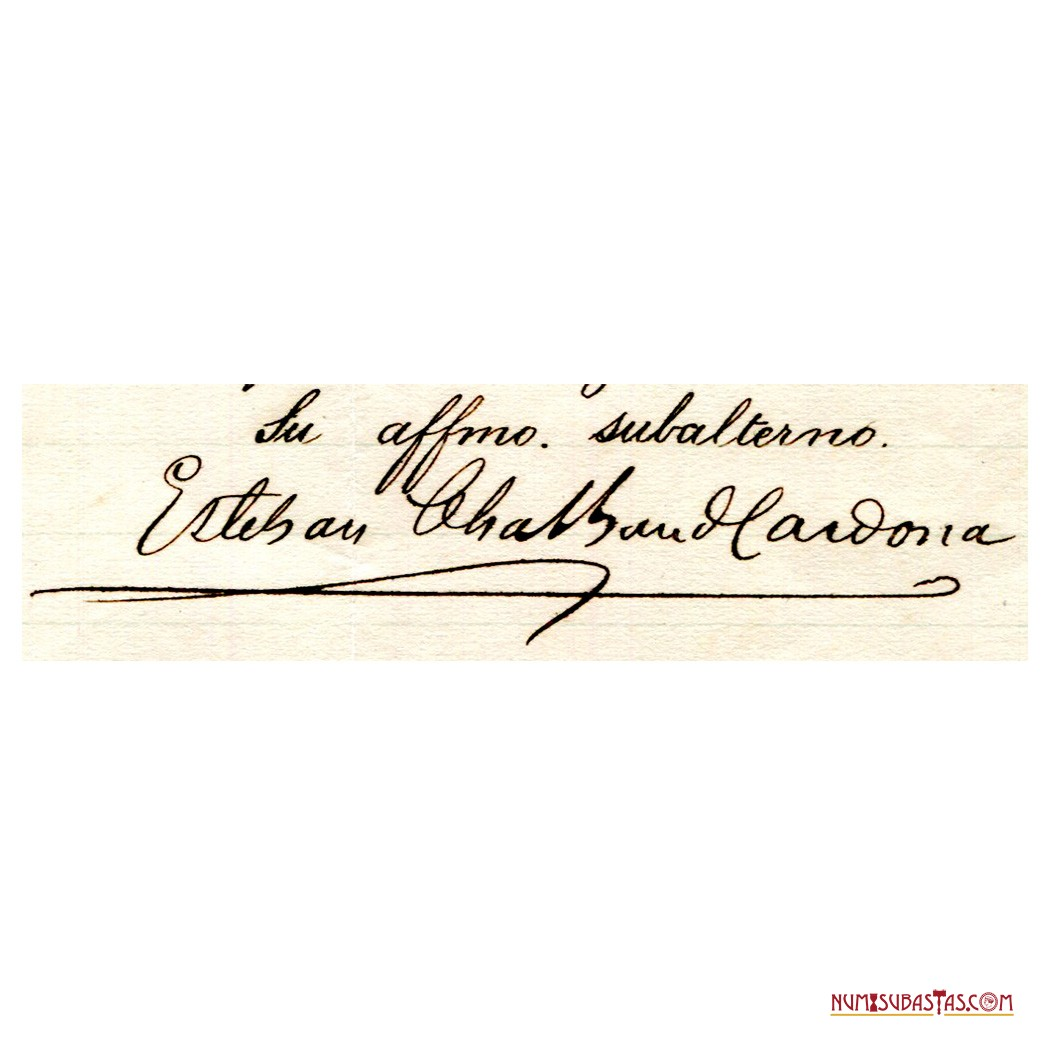 Su affmo. subalterno.
Esteban Chalbaud Cardona
NUMISUBASTAS.COM